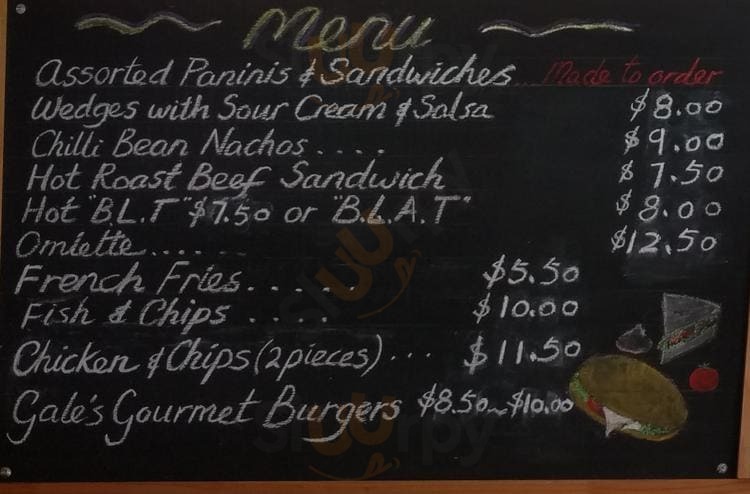 Menu
Assorted Paninis & Sandwiches... Made to order
Wedges with Sour Cream & Salsa $8.00
Chilli Bean Nachos.... $9.00
Hot Roast Beef Sandwich $7.50
Hot "B.L.T" $7.50 or "B.L.A.T" $8.00
Omlette...... $12.50
French Fries..... $5.50
Fish & Chips ..... $10.00
Chicken & Chips (2 pieces)... $11.50
Gale's Gourmet Burgers $8.50~$10.00